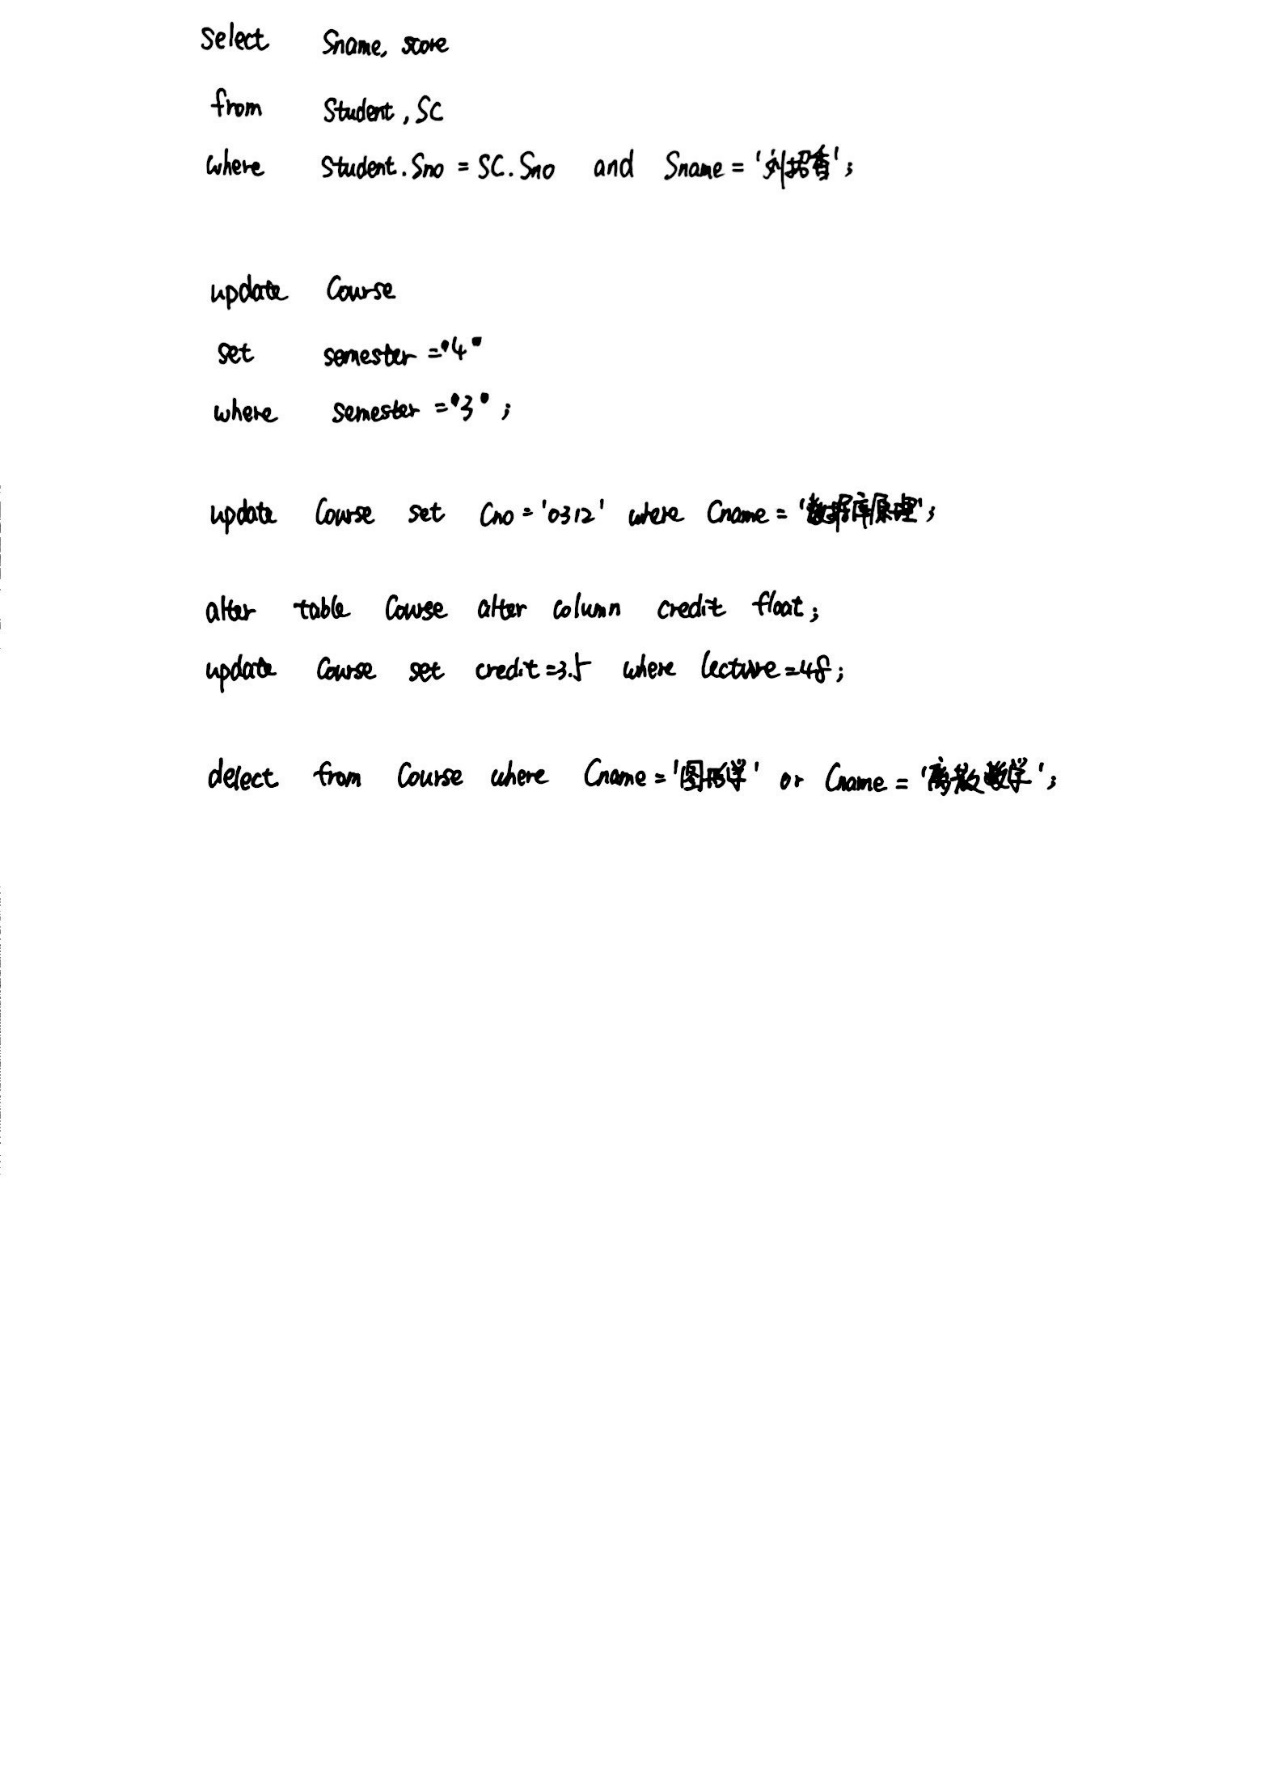 Select Sname, score
from Student, SC
where Student.Sno = SC.Sno and Sname = '刘招香';
update Course
set semester = "4"
where semester = "3";
update Course set Cno = '0312' where Cname = '数据库原理';
alter table Course alter column credit float;
update Course set credit=3.5 where lecture=48;
delect from Course where Cname = '图形学' or Cname = '离散数学';